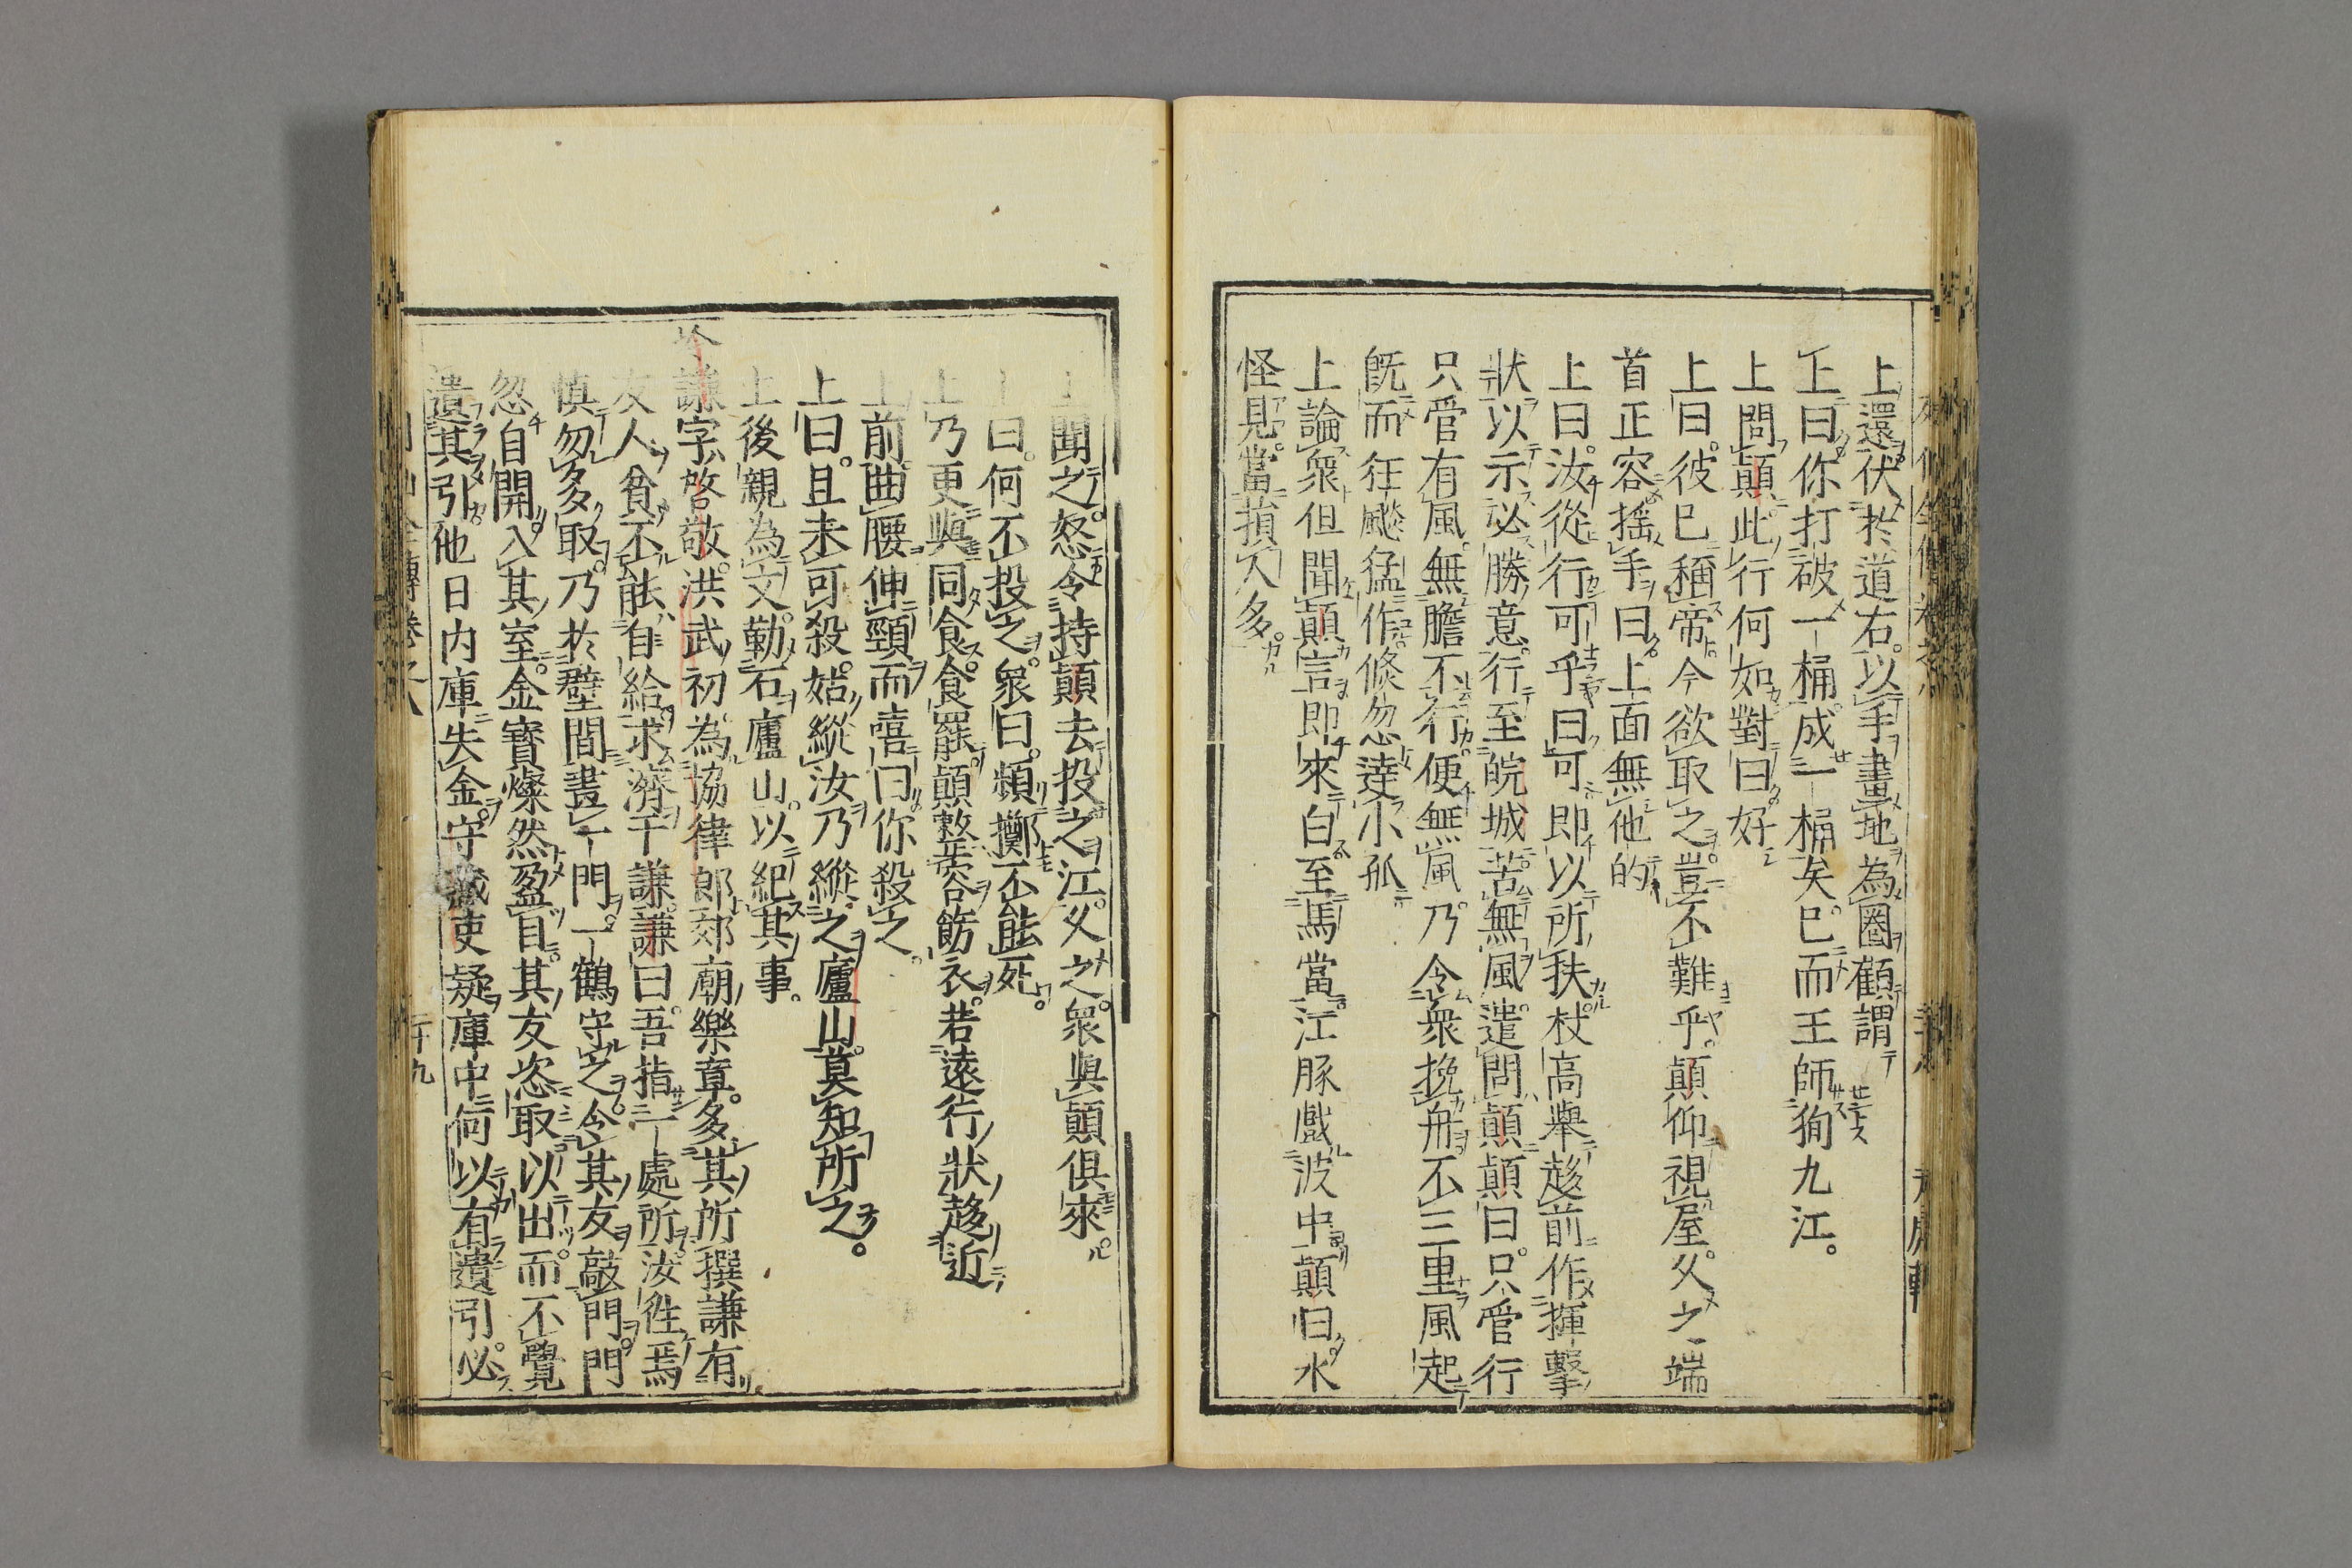 上還伏於道右以手畫地為圈顧謂
上曰你打破一桶成一桶矣已而王師狥九江
上問顛此行何如對曰好
上曰彼已稱帝今欲取之豈不難乎顛仰視屋久之端
首正容搖手曰上面無他的
上曰汝從行可乎曰可即以所扶杖高舉趍前作揮擊
狀以示必勝意行至皖城苦無風遣問顛顛曰只管行
只管有風無膽不行便無風乃令衆挽舟不三里風起
旣而狂飈猛作倐忽達小孤
上論衆但聞顛言即來白至馬當江豚戲波中顛曰水
怪見當損人多
上聞之怒令持顛去投之江久之衆與顛俱來
上曰何不投之衆曰頻擲不能死
上乃更與同食食罷顛整容飭衣若遠行狀趍近
上前曲腰伸頸而嘻曰你殺之
上曰且未可殺姑縱汝乃縱之廬山莫知所之
上後親為文勒石廬山以紀其事
冷謙字啓敬洪武初為協律郎郊廟樂章多其所撰謙有
友人貧不能自給求濟于謙謙曰吾指一處所汝徃焉
慎勿多取乃於壁間畫一門一鶴守之令其友敲門門
忽自開入其室金寶燦然盈目其友恣取以出而不覺
遺其引他日內庫失金守藏吏疑庫中何以有遺引必
卷之八
二十九